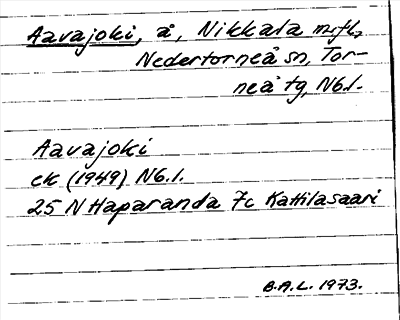 Aavajoki, å, Nikkala m.fl.,
Nedertorneå sn, Tor-
neå tg, Nb.l.
Aavajoki
ek (1949) Nb.l.
25 N Haparanda 7c Kattilasaari
B.A.L. 1973.